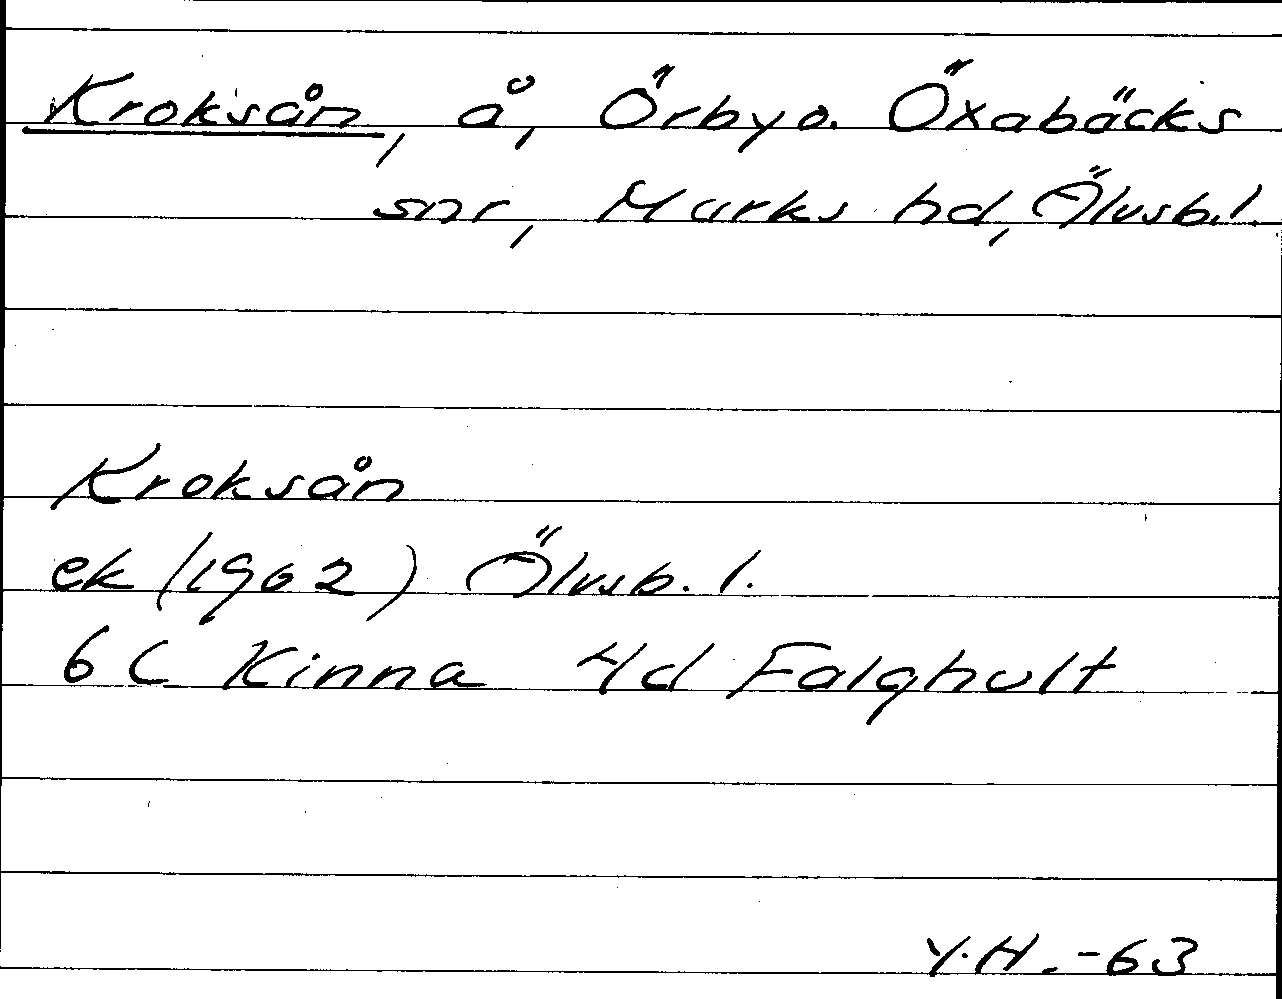 Kroksån, å, Örby o. Öxabäcks
snr, Marks hd, Älvsb.l.
Kroksån
ek (1962) Älvsb. l.
6C Kinna 4d Falghult
Y.H. -63